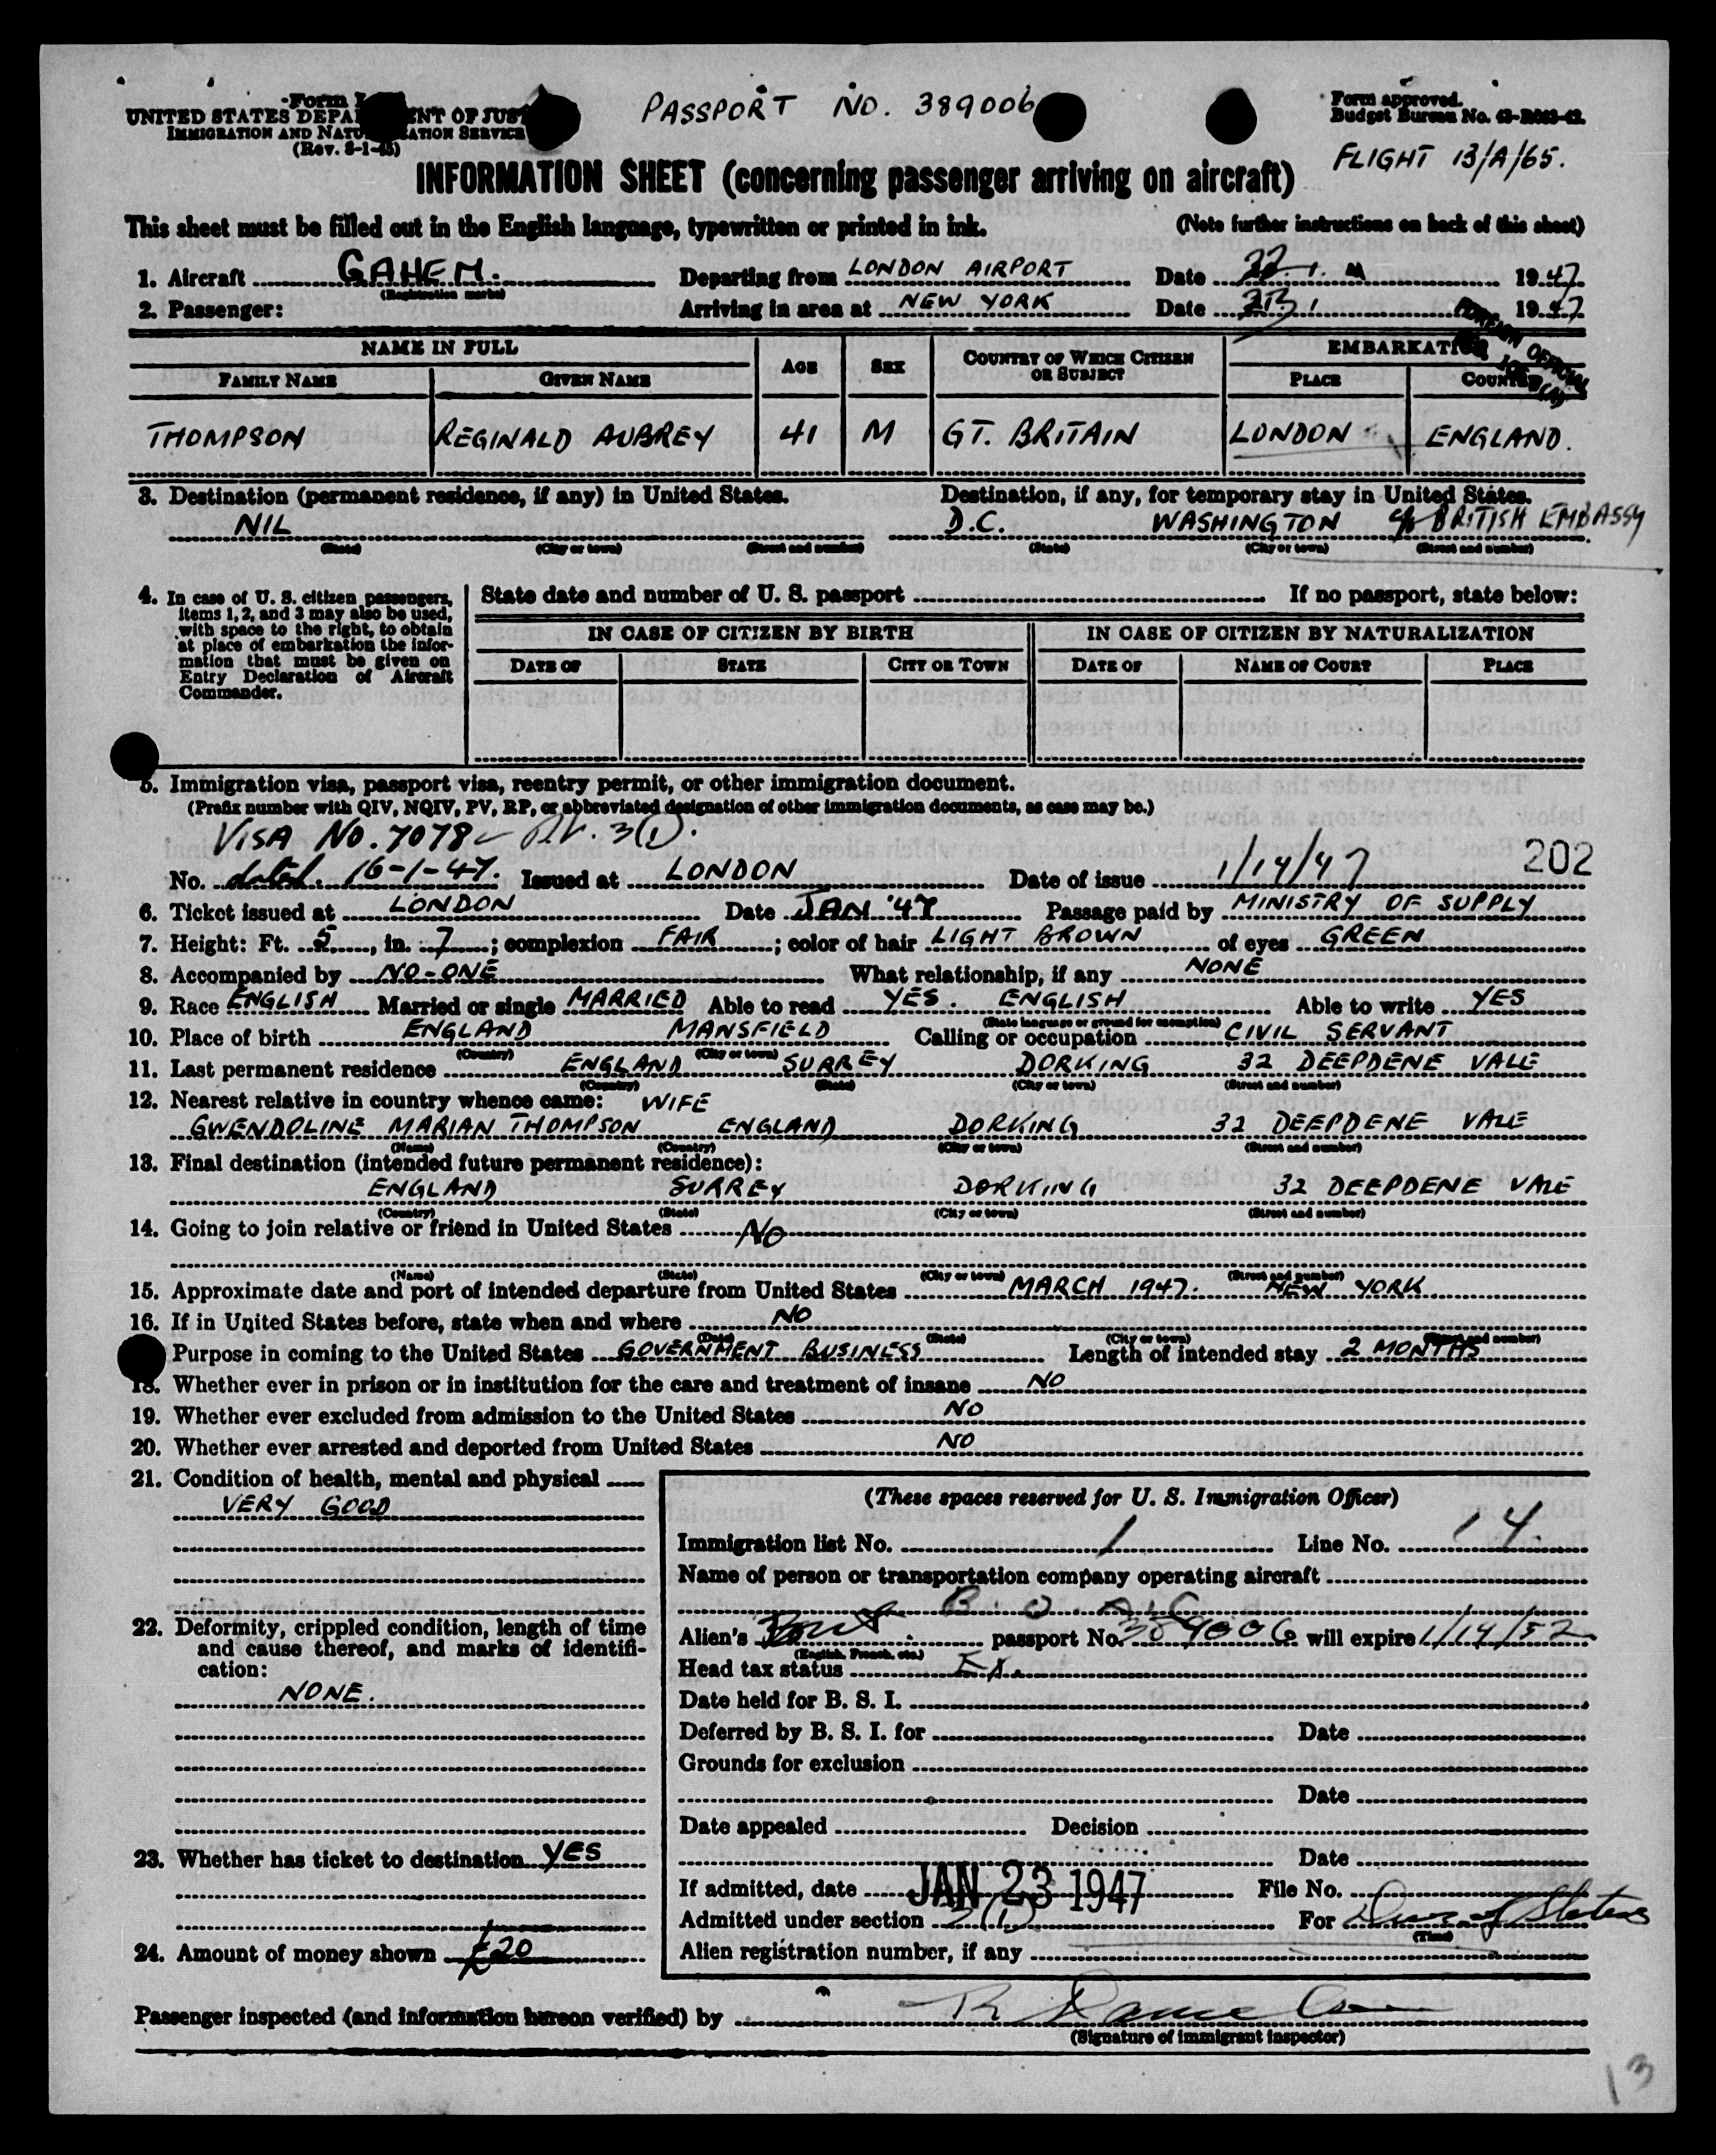 Form
UNITED STATES DEPA ENT OF JUST
IMMIGRATION AND NATU ATION SERVICE
(Rev. 8-1-45)
PASSPORT NO. 389006
Form approved.
Budget Bureau No.
FLIGHT 13/A/65.
INFORMATION SHEET (concerning passenger arriving on aircraft)
This sheet must be filled out in the English language, typewritten or printed in ink. (Note further instructions on back of this sheet)
1. Aircraft GAHEM. Departing from LONDON AIRPORT Date 22.1. 1947
(Registration marks)
2. Passenger: Arriving in area at NEW YORK Date 23 1 1947
NAME IN FULL AGE SEX COUNTRY OF WHICH CITIZEN OR SUBJECT EMBARKATION
FAMILY NAME GIVEN NAME PLACE COUNTRY
THOMPSON REGINALD AUBREY 41 M GT. BRITAIN LONDON ENGLAND.
3. Destination (permanent residence, if any) in United States. Destination, if any, for temporary stay in United States.
NIL D.C. WASHINGTON c/o BRITISH EMBASSY
(State) (City or town) (Street and number) (State) (City or town) (Street and number)
4. In case of U. S. citizen passengers, items 1, 2, and 3 may also be used, with space to the right, to obtain at place of embarkation the information that must be given on Entry Declaration of Aircraft Commander.
State date and number of U. S. passport If no passport, state below:
IN CASE OF CITIZEN BY BIRTH IN CASE OF CITIZEN BY NATURALIZATION
DATE OF STATE CITY OR TOWN DATE OF NAME OF COURT PLACE
5. Immigration visa, passport visa, reentry permit, or other immigration document.
(Prefix number with QIV, NQIV, PV, RP, or abbreviated designation of other immigration documents, as case may be.)
VISA NO. 7078 P.V. 3(1).
202
No. dated 16-1-47. Issued at LONDON Date of issue 1/14/47
6. Ticket issued at LONDON Date JAN '47 Passage paid by MINISTRY OF SUPPLY
7. Height: Ft. 5, in. 7; complexion FAIR; color of hair LIGHT BROWN of eyes GREEN
8. Accompanied by NO-ONE What relationship, if any NONE
9. Race ENGLISH Married or single MARRIED Able to read YES. ENGLISH Able to write YES
(State language or ground for exemption)
10. Place of birth ENGLAND MANSFIELD Calling or occupation CIVIL SERVANT
(Country) (City or town)
11. Last permanent residence ENGLAND SURREY DORKING 32 DEEPDENE VALE
(Country) (State) (City or town) (Street and number)
12. Nearest relative in country whence came: WIFE
GWENDOLINE MARIAN THOMPSON ENGLAND DORKING 32 DEEPDENE VALE
(Name) (Country) (City or town) (Street and number)
13. Final destination (intended future permanent residence):
ENGLAND SURREY DORKING 32 DEEPDENE VALE
(Country) (State) (City or town) (Street and number)
14. Going to join relative or friend in United States NO
(Name) (State) (City or town) (Street and number)
15. Approximate date and port of intended departure from United States MARCH 1947. NEW YORK
16. If in United States before, state when and where NO
(Date) (State) (City or town) (Street and number)
Purpose in coming to the United States GOVERNMENT BUSINESS Length of intended stay 2 MONTHS
18. Whether ever in prison or in institution for the care and treatment of insane NO
19. Whether ever excluded from admission to the United States NO
20. Whether ever arrested and deported from United States NO
21. Condition of health, mental and physical
VERY GOOD
22. Deformity, crippled condition, length of time and cause thereof, and marks of identification:
NONE.
23. Whether has ticket to destination YES
24. Amount of money shown £20
(These spaces reserved for U. S. Immigration Officer)
Immigration list No. 1 Line No. 14
Name of person or transportation company operating aircraft
B.O.A.C
Alien's Brit passport No. 389006 will expire 1/14/52
(English, French, etc.)
Head tax status EX.
Date held for B. S. I.
Deferred by B. S. I. for Date
Grounds for exclusion
Date
Date appealed Decision
Date
If admitted, date JAN 23 1947 File No.
Admitted under section 3(1) For Dur of Status
(Time)
Alien registration number, if any
Passenger inspected (and information hereon verified) by
(Signature of immigrant inspector)
13